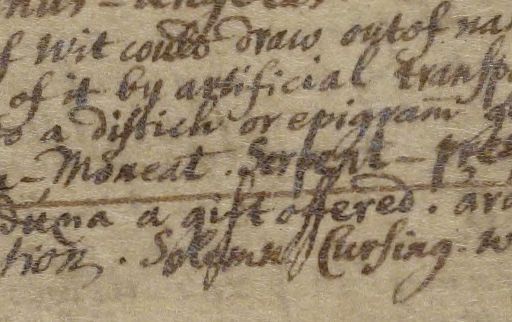 wit could draw out of na
of it by artificial transp
a distich or epigram̄
Moneat. Serpent - pre
a gift offered. ara
tion. Solemn Cursing. w